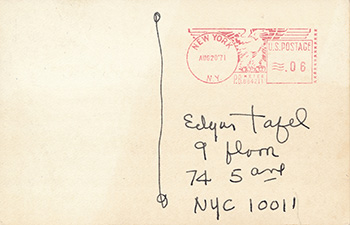 NEW YORK
AUG20'71
N.Y.
U.S. POSTAGE
.06
Edgar Tafel
9 floor
74 5 ave
NYC 10011